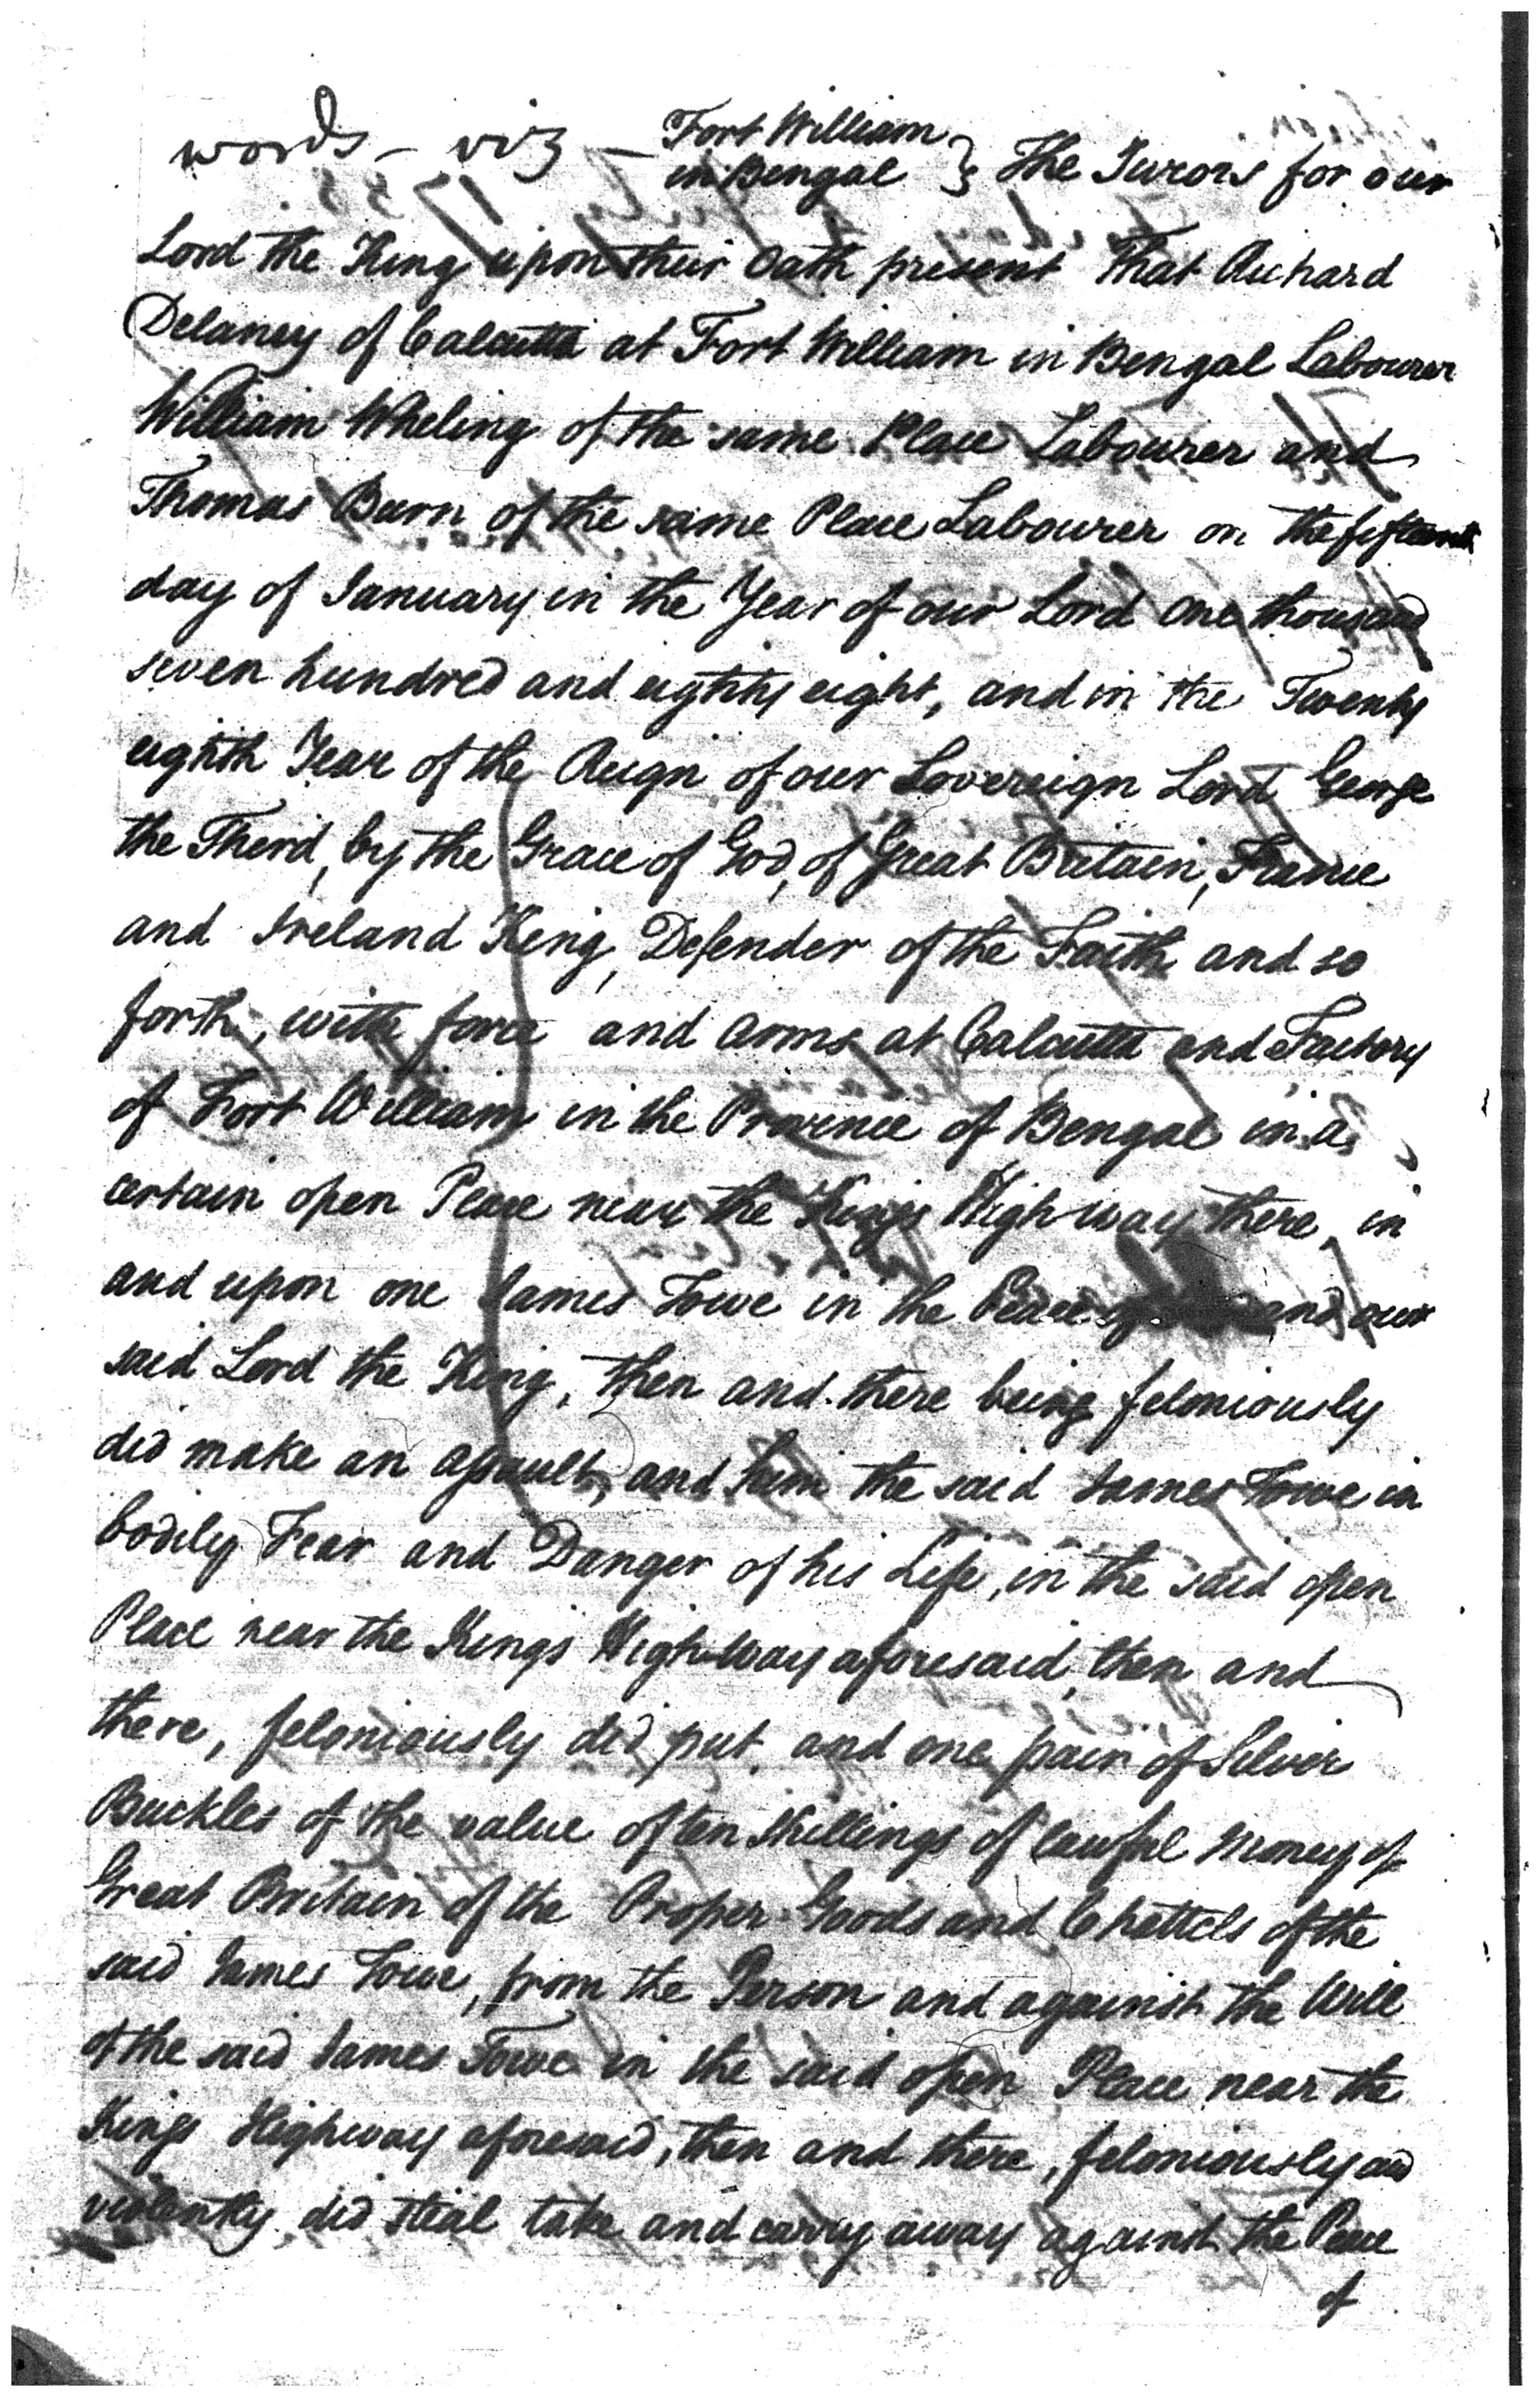 words – viz – Fort William
in Bengal } The Jurors for our
Lord the King upon their Oath present That Richard
Delaney of Calcutta at Fort William in Bengal Labourer
William Wheling of the same Place Labourer and
Thomas Burn of the same Place Labourer on the fifteenth
day of January in the Year of our Lord One thousand
seven hundred and eighty eight, and in the Twenty
eighth Year of the Reign of our Sovereign Lord George
the Third, by the Grace of God, of Great Britain, France
and Ireland King, Defender of the Faith and so
forth, with force and Arms at Calcutta and Factory
of Fort William in the Province of Bengal in a
certain open Place near the Kings High way there, in
and upon one James Towe in the Peace and our
said Lord the King, then and there being feloniously
did make an assault, and him the said James Towe in
bodily Fear and Danger of his Life, in the said open
Place near the Kings High-way aforesaid, then and
there, feloniously did put, and one pair of Silver
Buckles of the value of ten Shillings of lawful Money of
Great Britain of the Proper Goods and Chattels of the
said James Towe, from the Person and against the Will
of the said James Towe in the said open Place near the
Kings Highway aforesaid, then and there, feloniously and
violently did steal take and carry away against the Peace
of